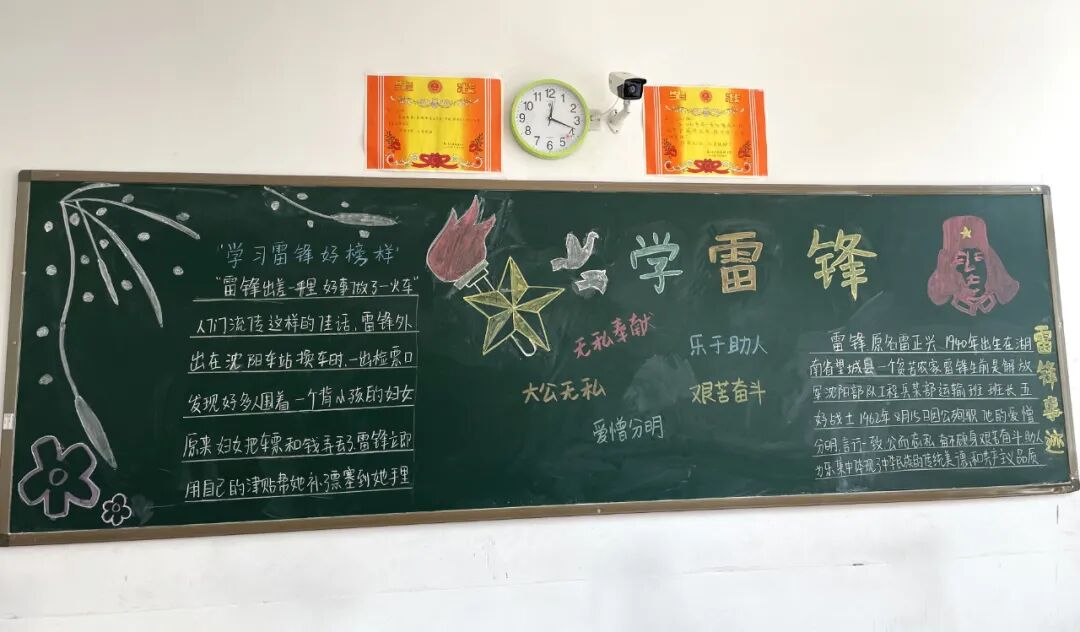 12
1
2
3
4
5
6
7
8
9
10
11
'学习雷锋好榜样'
"雷锋出差一千里 好事做了一火车"
人们流传这样的佳话,雷锋外
出在沈阳车站换车时,一出检票口
发现好多人围着一个背小孩的妇女
原来妇女把车票和钱弄丢了,雷锋立即
用自己的津贴帮她补了票塞到她手里
学雷锋
无私奉献
乐于助人
大公无私
艰苦奋斗
爱憎分明
雷锋 原名雷正兴,1940年出生在湖
南省望城县一个贫苦农家雷锋生前是解放
军沈阳部队工程兵某部运输班班长五
好战士1962年8月15日因公殉职 他的爱憎
分明,言行一致,公而忘私 奋不顾身艰苦奋斗助人
为乐集中体现了中华民族的传统美德和共产主义品质
雷锋事迹